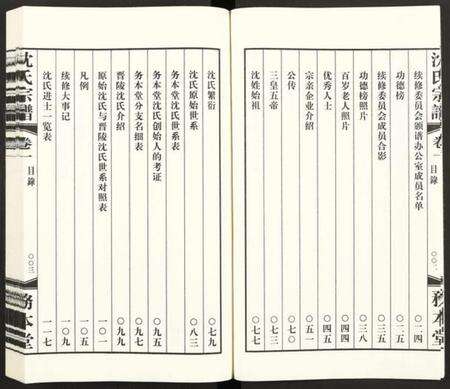 沈氏宗譜
卷一
目錄
〇〇二
務本堂
續修委員會顧譜辦公室成員名單 〇一四
功德榜 〇三五
續修委員會成員合影 〇三八
功德榜照片 〇四二
百岁老人照片 〇四四
優秀人士 〇四五
宗亲企业介绍 〇五一
公传 〇七〇
三皇五帝 〇七七
沈姓始祖 〇七七
沈氏繁衍 〇七九
沈氏原始世系 〇八三
務本堂沈氏世系表
務本堂沈氏創始人的考证
务本堂分支名细表 〇九九
晋陵沈氏介绍 〇九九
原始沈氏与晋陵沈氏世系对照表 一〇一
凡例 一〇五
续修大事记 一〇九
沈氏进士一览表 一一七
沈氏宗譜
卷一
目錄
〇〇三
務本堂